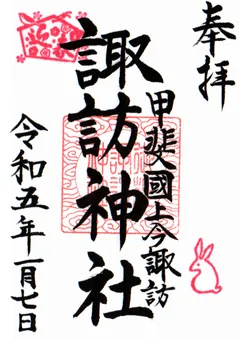 奉拝
甲斐國上今諏訪
諏訪神社
令和五年一月七日